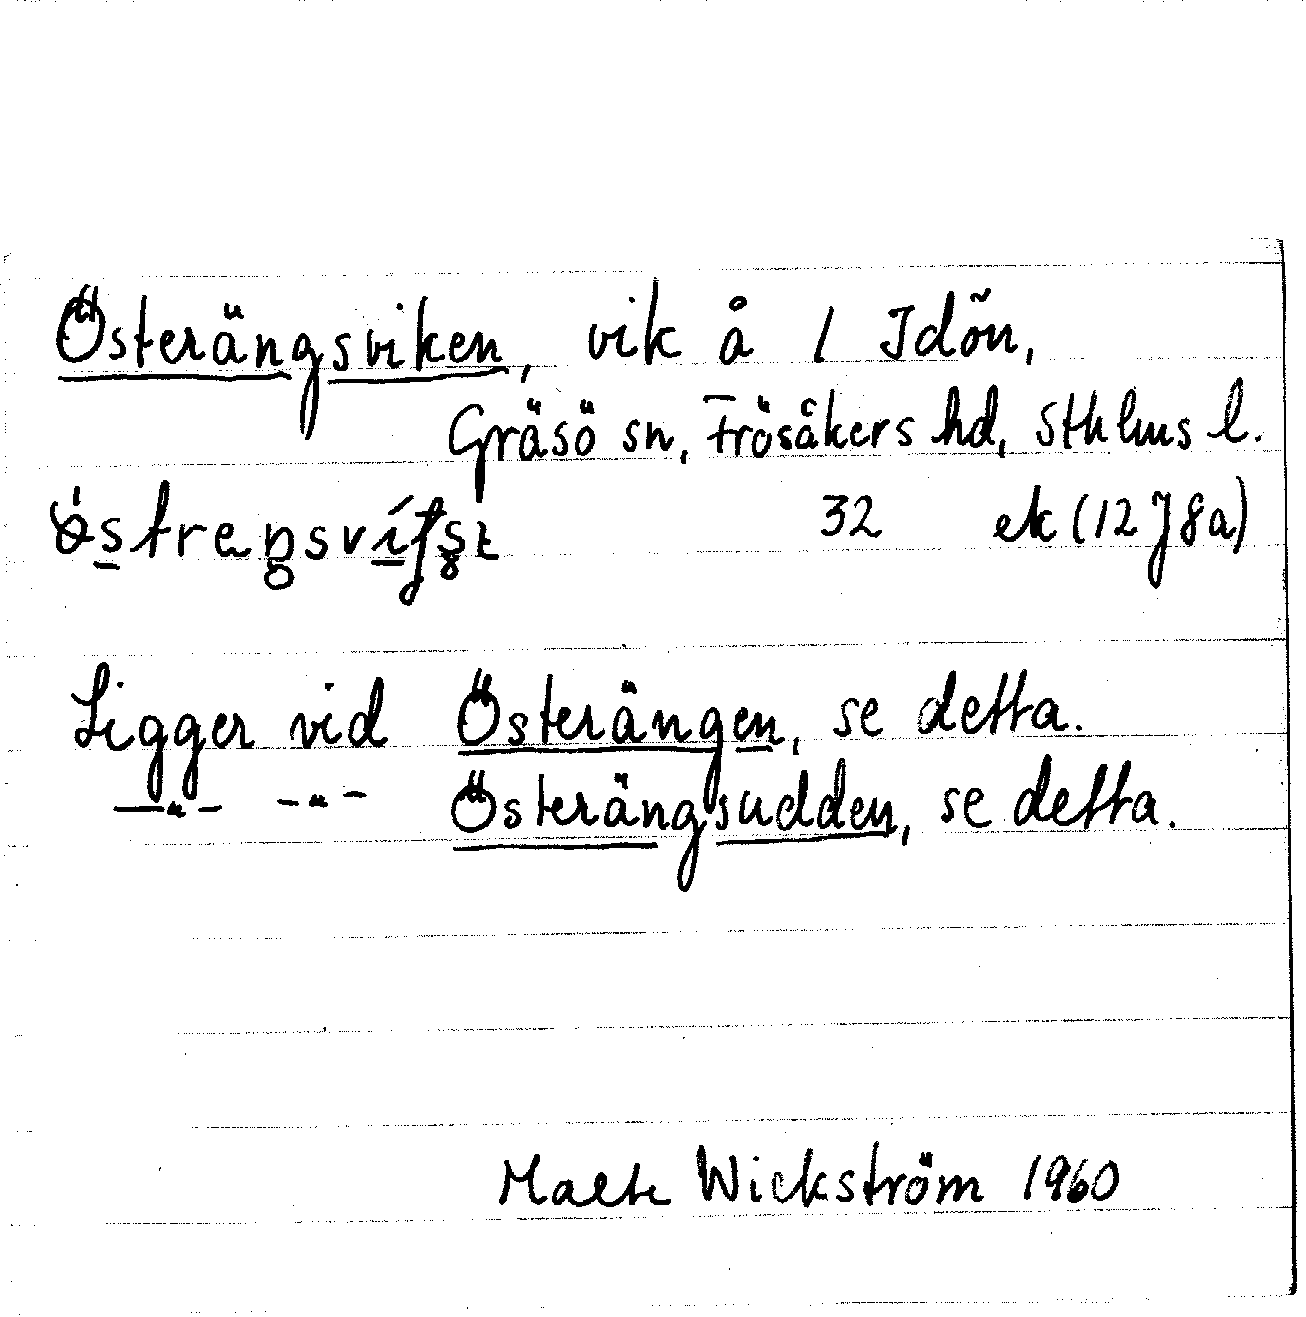 Österängsviken, vik å 1 Idön,
Gräsö sn, Frösåkers hd, Sthlms l.
32 ek (12 J 8a)
Ligger vid Österängen, se detta.
—"— -"- Österängsudden, se detta.
Malte Wickström 1960